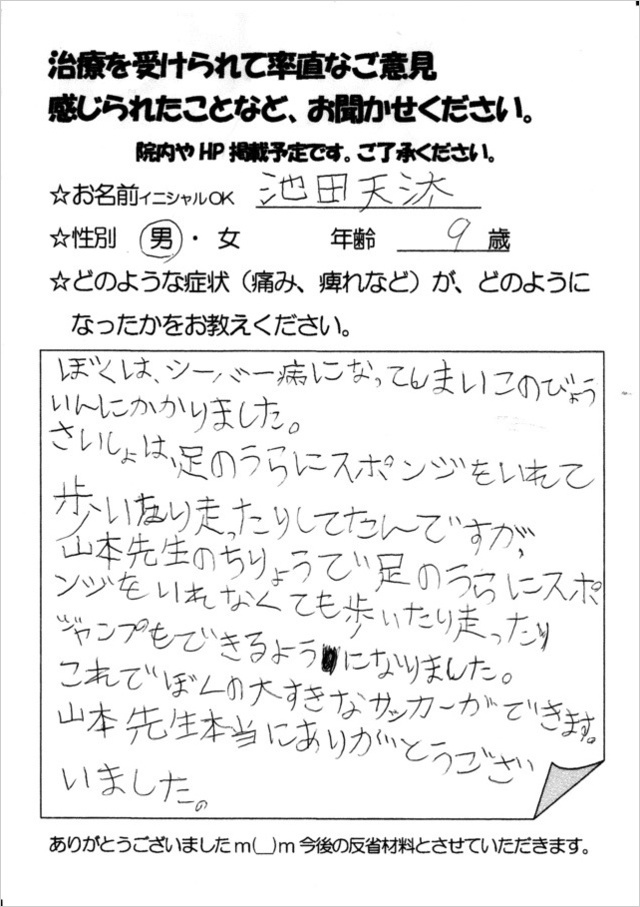 治療を受けられて率直なご意見
感じられたことなど、お聞かせください。
院内やHP掲載予定です。ご了承ください。
☆お名前イニシャルOK 池田天
☆性別 男・女 年齢 9 歳
☆どのような症状（痛み、痺れなど）が、どのように
なったかをお教えください。
ぼくは、シーバー病になってしまいこのびょう
いんにかかりました。
さいしょは、足のうらにスポンジをいれて
歩いたり走ったりしてたんですが、
山本先生のちりょうで足のうらにスポ
ンジをいれなくても歩いたり走ったり
ジャンプもできるようになりました。
これでぼくの大すきなサッカーができます。
山本先生本当にありがとうござい
いました。
ありがとうございましたm(__)m今後の反省材料とさせていただきます。